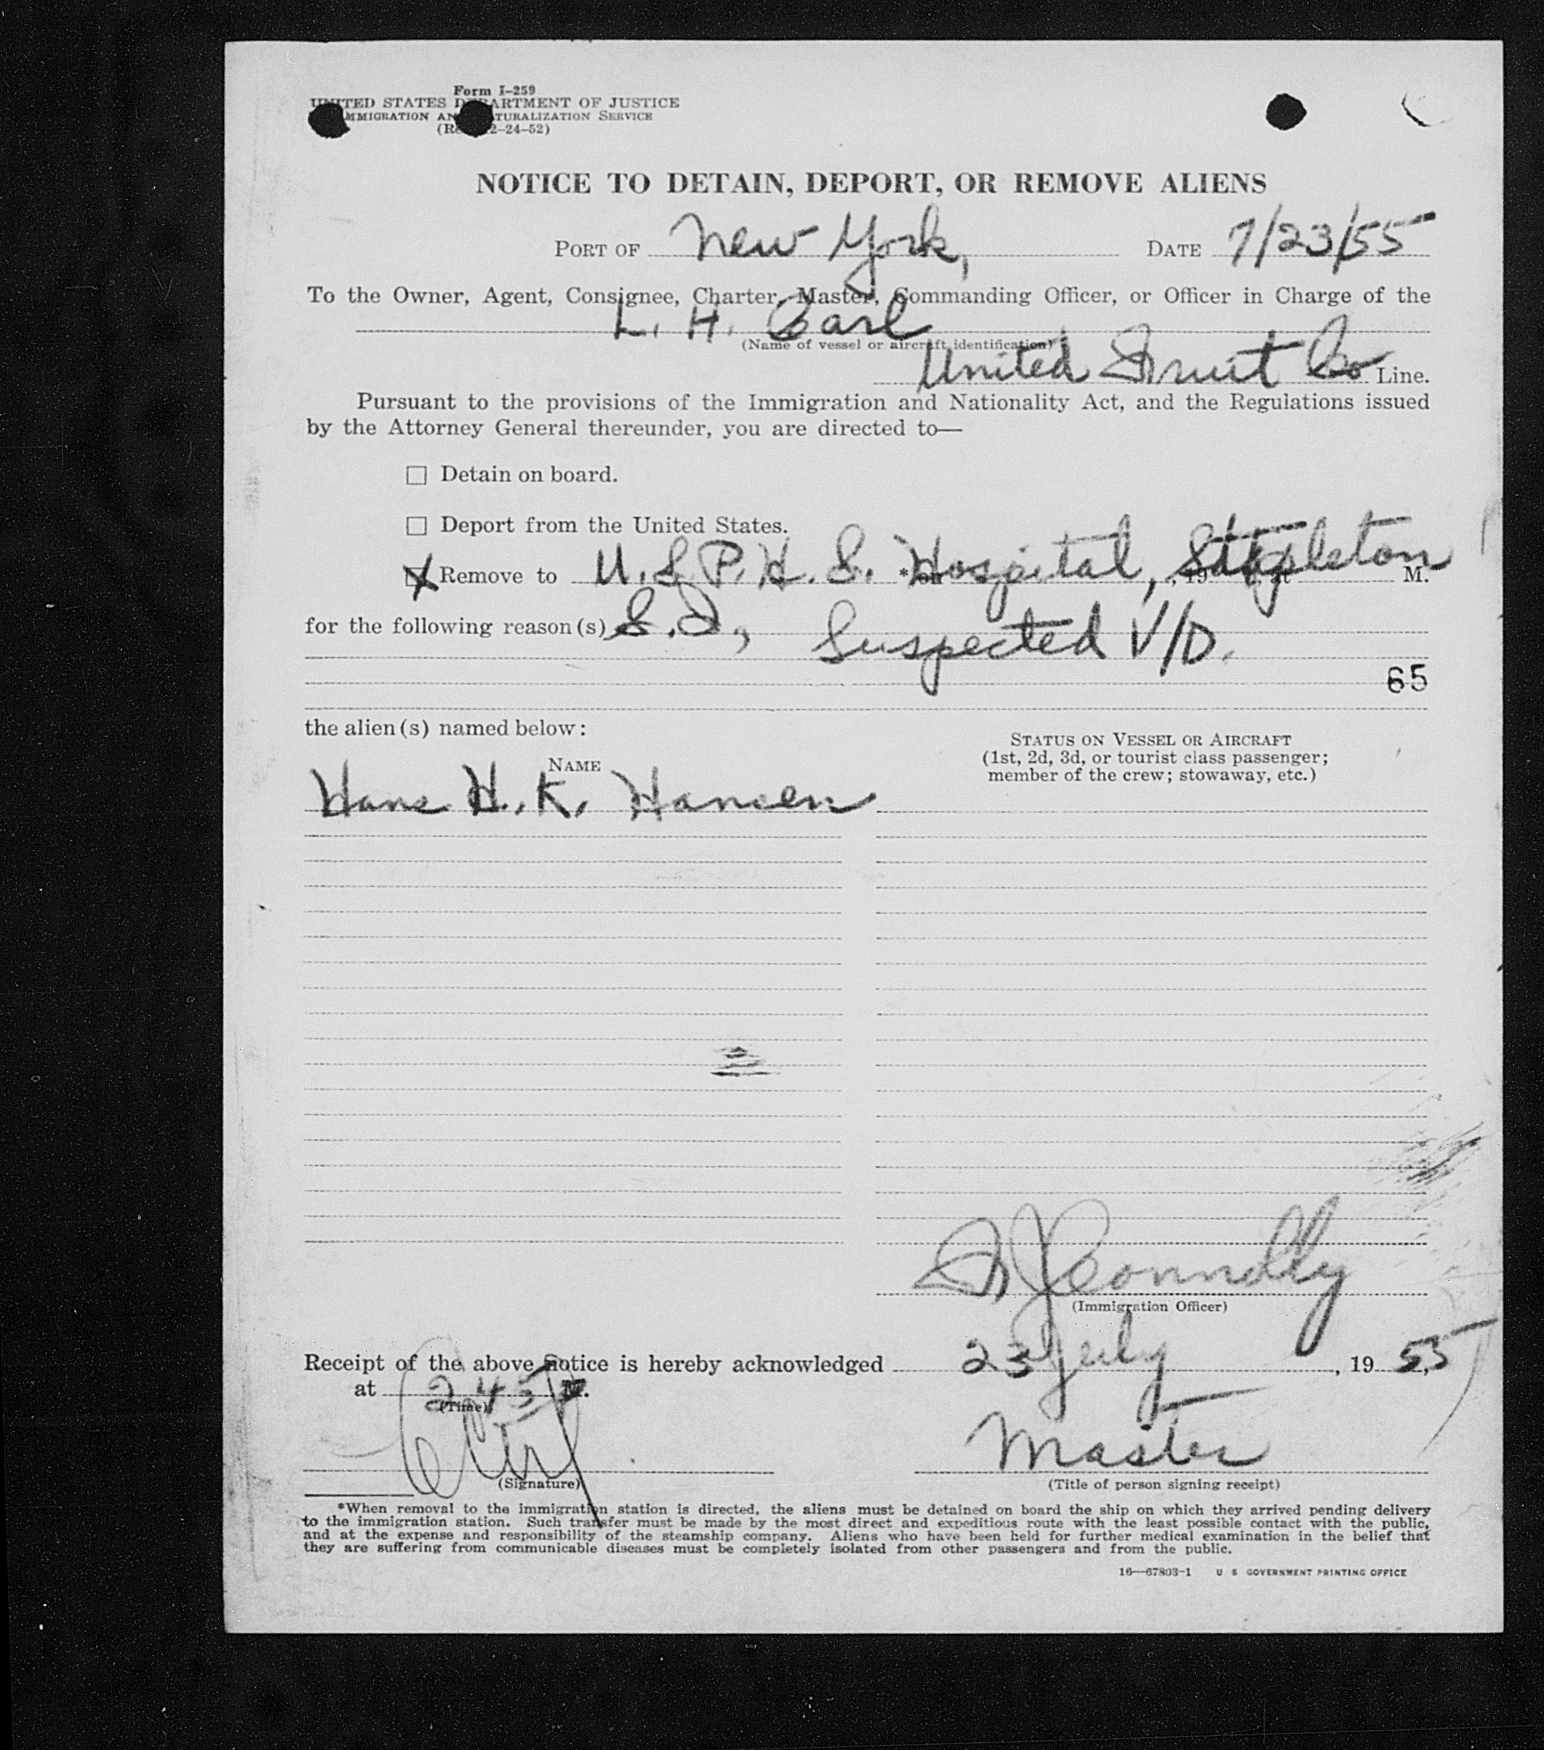 Form I-259
UNITED STATES DEPARTMENT OF JUSTICE
IMMIGRATION AND NATURALIZATION SERVICE
(Rev. 12-24-52)
NOTICE TO DETAIN, DEPORT, OR REMOVE ALIENS
PORT OF New York, DATE 7/23/55
To the Owner, Agent, Consignee, Charter, Master, Commanding Officer, or Officer in Charge of the
L. H. Carl
(Name of vessel or aircraft identification)
United Fruit Co Line.
Pursuant to the provisions of the Immigration and Nationality Act, and the Regulations issued
by the Attorney General thereunder, you are directed to—
☐ Detain on board.
☐ Deport from the United States.
☒ Remove to U.S.P.H.S. Hospital, Stapleton *on , 19 , at M.
for the following reason(s) S.I., Suspected V/D.
65
the alien(s) named below:
NAME
STATUS ON VESSEL OR AIRCRAFT
(1st, 2d, 3d, or tourist class passenger;
member of the crew; stowaway, etc.)
Hans H. K. Hansen
F J Connolly
(Immigration Officer)
Receipt of the above notice is hereby acknowledged 23 July, 19 55,
at 2 45 M.
(Time)
Master
(Signature)
(Title of person signing receipt)
*When removal to the immigration station is directed, the aliens must be detained on board the ship on which they arrived pending delivery
to the immigration station. Such transfer must be made by the most direct and expeditious route with the least possible contact with the public,
and at the expense and responsibility of the steamship company. Aliens who have been held for further medical examination in the belief that
they are suffering from communicable diseases must be completely isolated from other passengers and from the public.
16—67803-1 U S GOVERNMENT PRINTING OFFICE